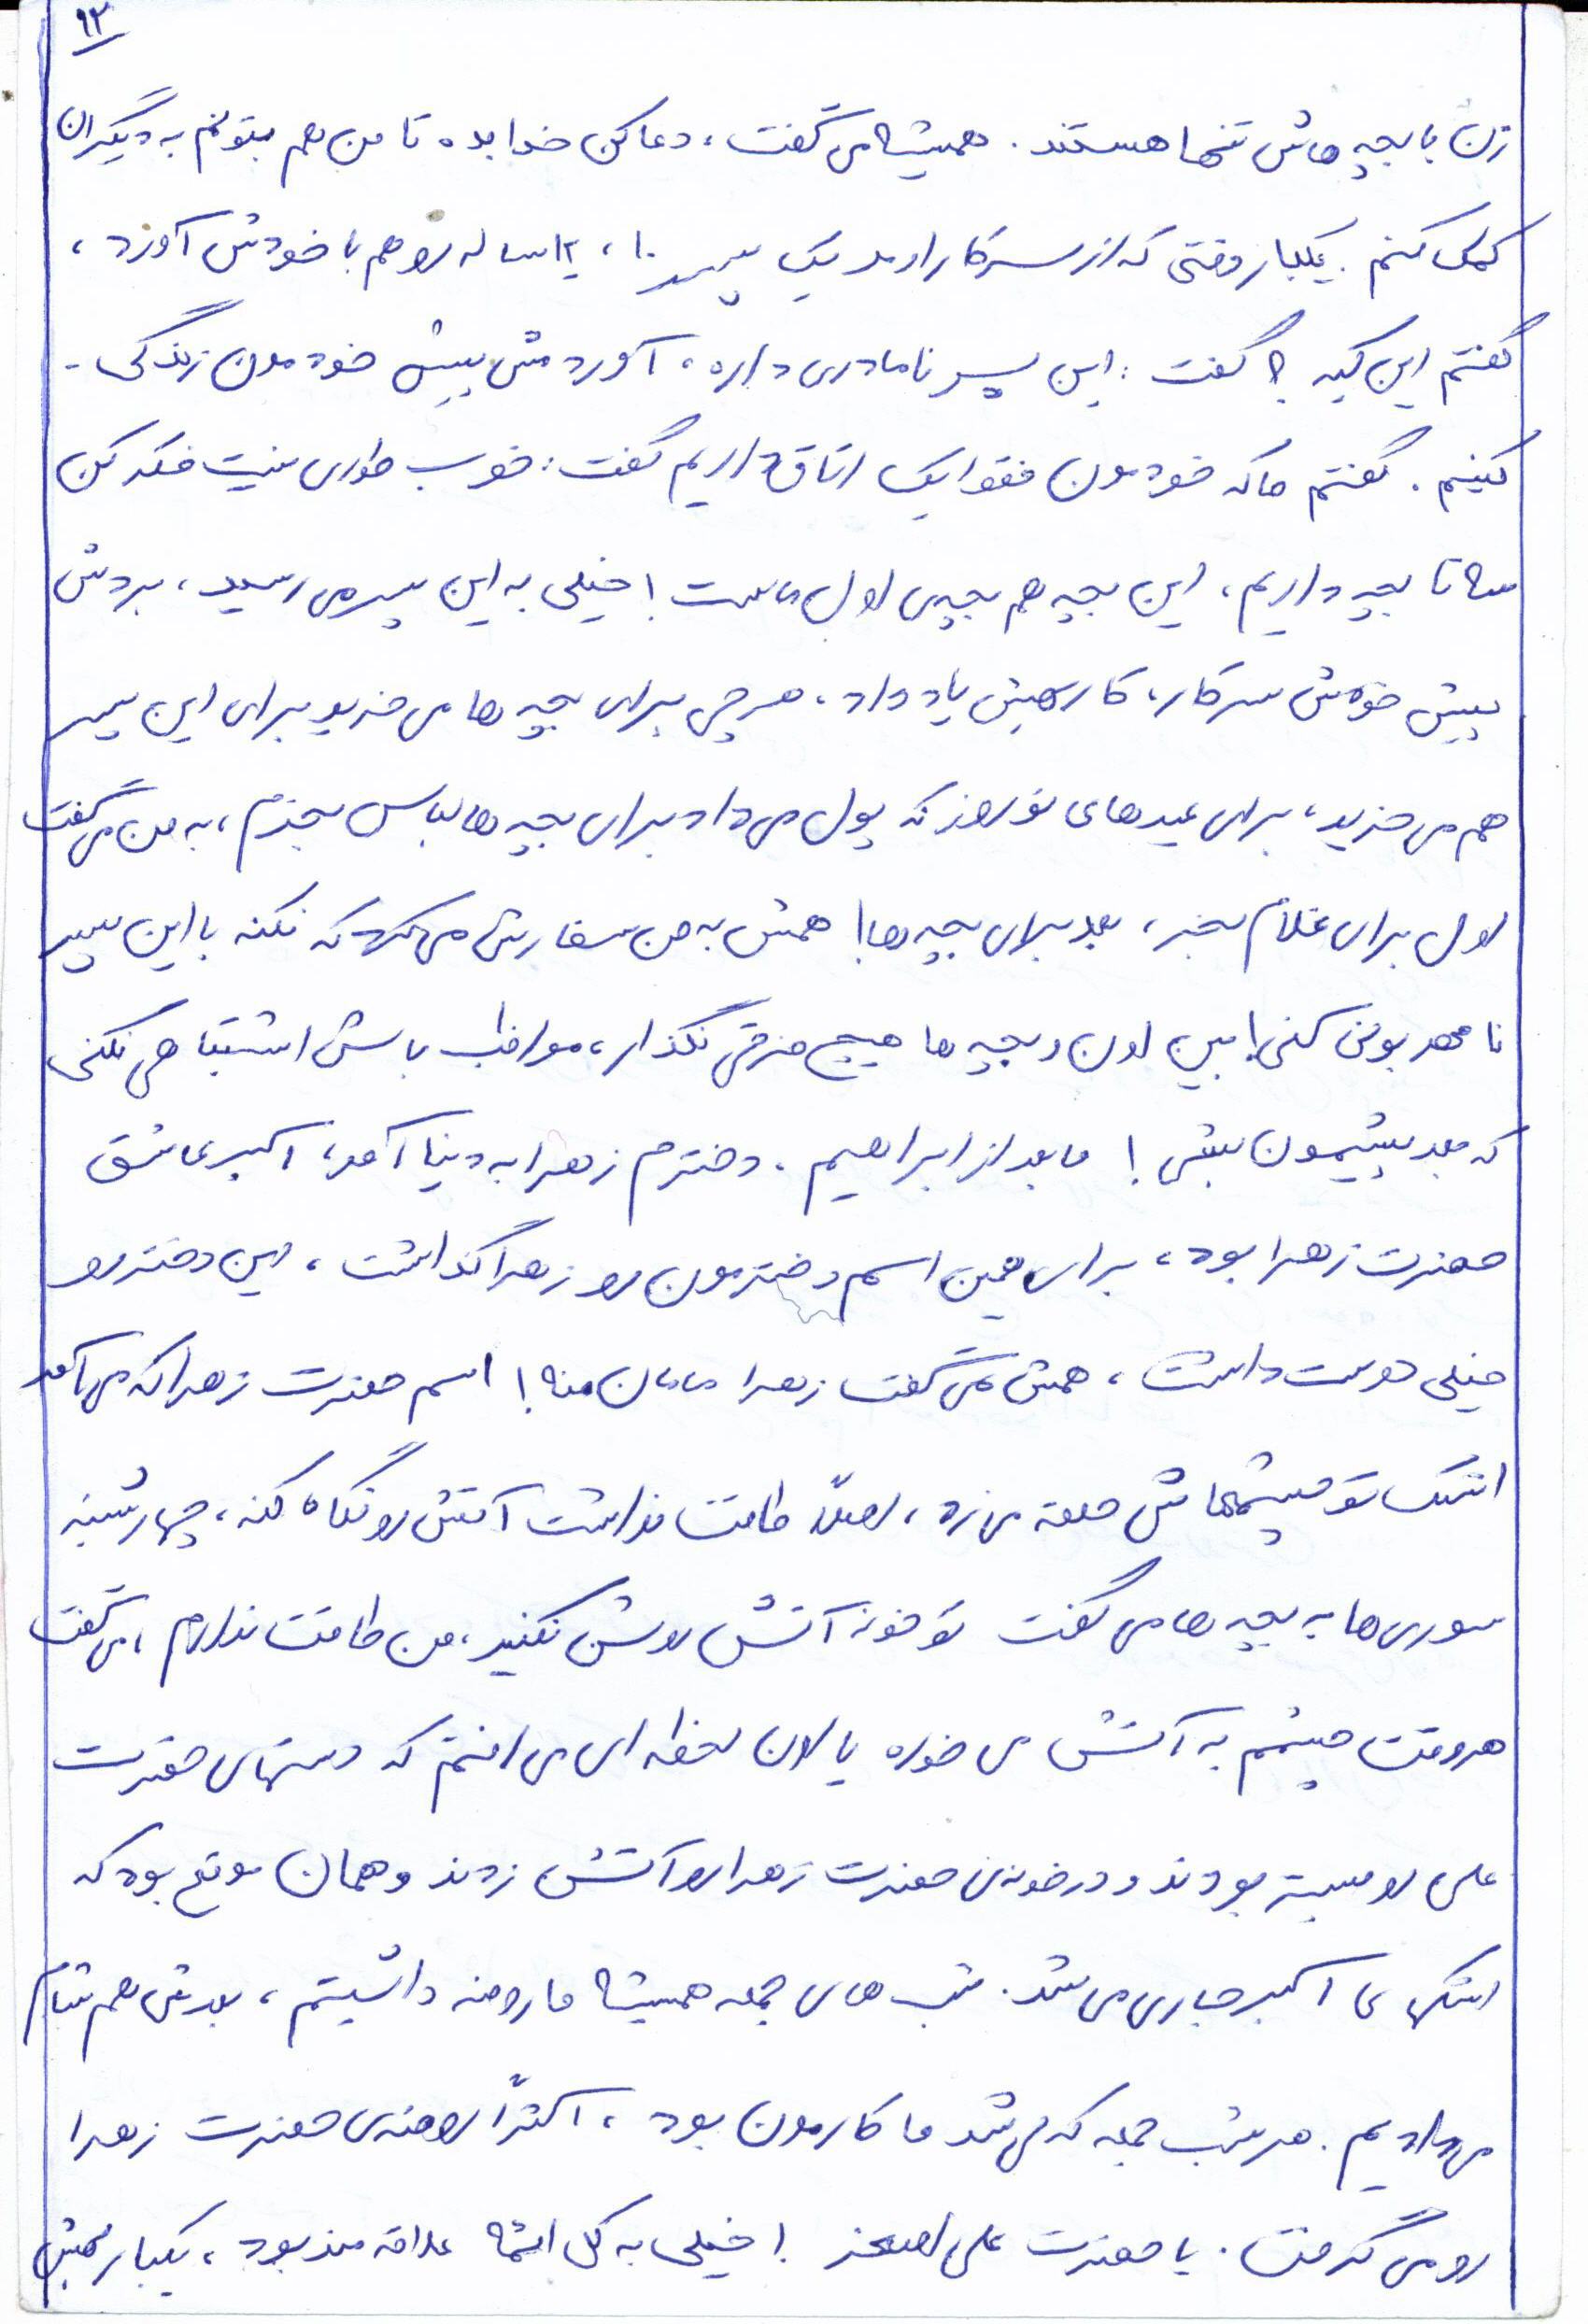 ۹۳
زن با بچه هاش تنها هستند. همیشه می گفت، دعا کن خدا بده تا من هم بتونم به دیگران
کمک کنم. یکبار وقتی که از سرکار اومد یک پسر ۱۰، ۱۲ ساله رو هم با خودش آورد،
گفتم این کیه؟ گفت: این پسر نامادری داره، آوردمش پیش خودمون زندگی-
کنیم. گفتم ما که خودمون فقط یک اتاق داریم گفت: خوب طوری نیست فکر کن
سه تا بچه داریم، این بچه هم بچه‌ی اول ماست! خیلی به این پسر می رسید، بردش
پیش خودش سرکار، کار بهش یاد داد، هرچی برای بچه ها می خرید برای این پسر
هم می خرید، برای عیدهای نوروز که پول می داد برای بچه ها لباس بخرم، به من می گفت
اول برای غلام بخر، بعد برای بچه ها! همش به من سفارش می کرد که نکنه با این پسر
نامهربونی کنی! بین اون و بچه ها هیچ فرقی نگذار، مواظب باش اشتباهی نکنی
که بعد پشیمون بشی! ما بعد از ابراهیم. دخترم زهرا به دنیا آمد، اکبر عاشق
حضرت زهرا بود، برای همین اسم دخترمون رو زهرا گذاشت، این دختر رو
خیلی دوست داشت، همش می گفت زهرا مامان منه! اسم حضرت زهرا که می آمد
اشک تو چشمهاش حلقه می زد، اصلاً طاقت نداشت آتش رو نگاه کنه، چهارشنبه
سوری ها به بچه ها می گفت تو خونه آتش روشن نکنید، من طاقت ندارم، می گفت
هر وقت چشمم به آتش می خوره یاد اون لحظه ای می افتم که دستهای حضرت
علی رو بسته بودند و در خونه‌ی حضرت زهرا رو آتش زدند و همان موقع بود که
اشکهای اکبر جاری می شد. شب های جمعه همیشه ما روضه داشتیم، بعدش هم شام
می دادیم. هر شب جمعه که می شد ما کارمون بود، اکثراً روضه‌ی حضرت زهرا
رو می گرفت. یا حضرت علی اصغر! خیلی به کل ائمه علاقه مند بود، یکبار بهش